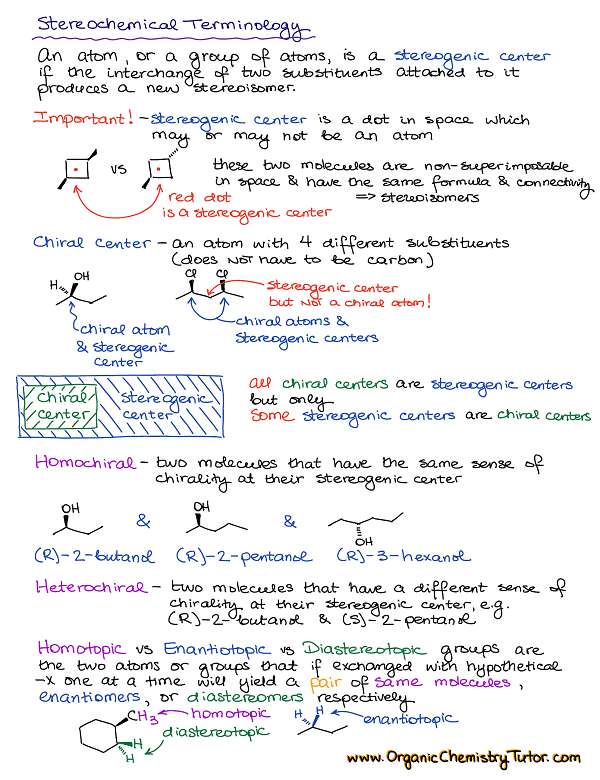 Stereochemical Terminology
An atom, or a group of atoms, is a stereogenic center
if the interchange of two substituents attached to it
produces a new stereoisomer.
Important! - stereogenic center is a dot in space which
may or may not be an atom
vs
these two molecules are non-superimposable
in space & have the same formula & connectivity
=> stereoisomers
red dot
is a stereogenic center
Chiral Center - an atom with 4 different substituents
(does NOT have to be carbon)
H OH
Cl Cl
stereogenic center
but NOT a chiral atom!
chiral atom
& stereogenic
center
chiral atoms &
stereogenic centers
chiral
center
stereogenic
center
all chiral centers are stereogenic centers
but only
some stereogenic centers are chiral centers
Homochiral - two molecules that have the same sense of
chirality at their stereogenic center
OH & OH & OH
(R)-2-butanol (R)-2-pentanol (R)-3-hexanol
Heterochiral - two molecules that have a different sense of
chirality at their stereogenic center, e.g.
(R)-2-butanol & (S)-2-pentanol
Homotopic vs Enantiotopic vs Diastereotopic groups are
the two atoms or groups that if exchanged with hypothetical
-X one at a time will yield a pair of same molecules,
enantiomers, or diastereomers respectively
CH3 homotopic
diastereotopic
H
H
H H enantiotopic
www.OrganicChemistryTutor.com